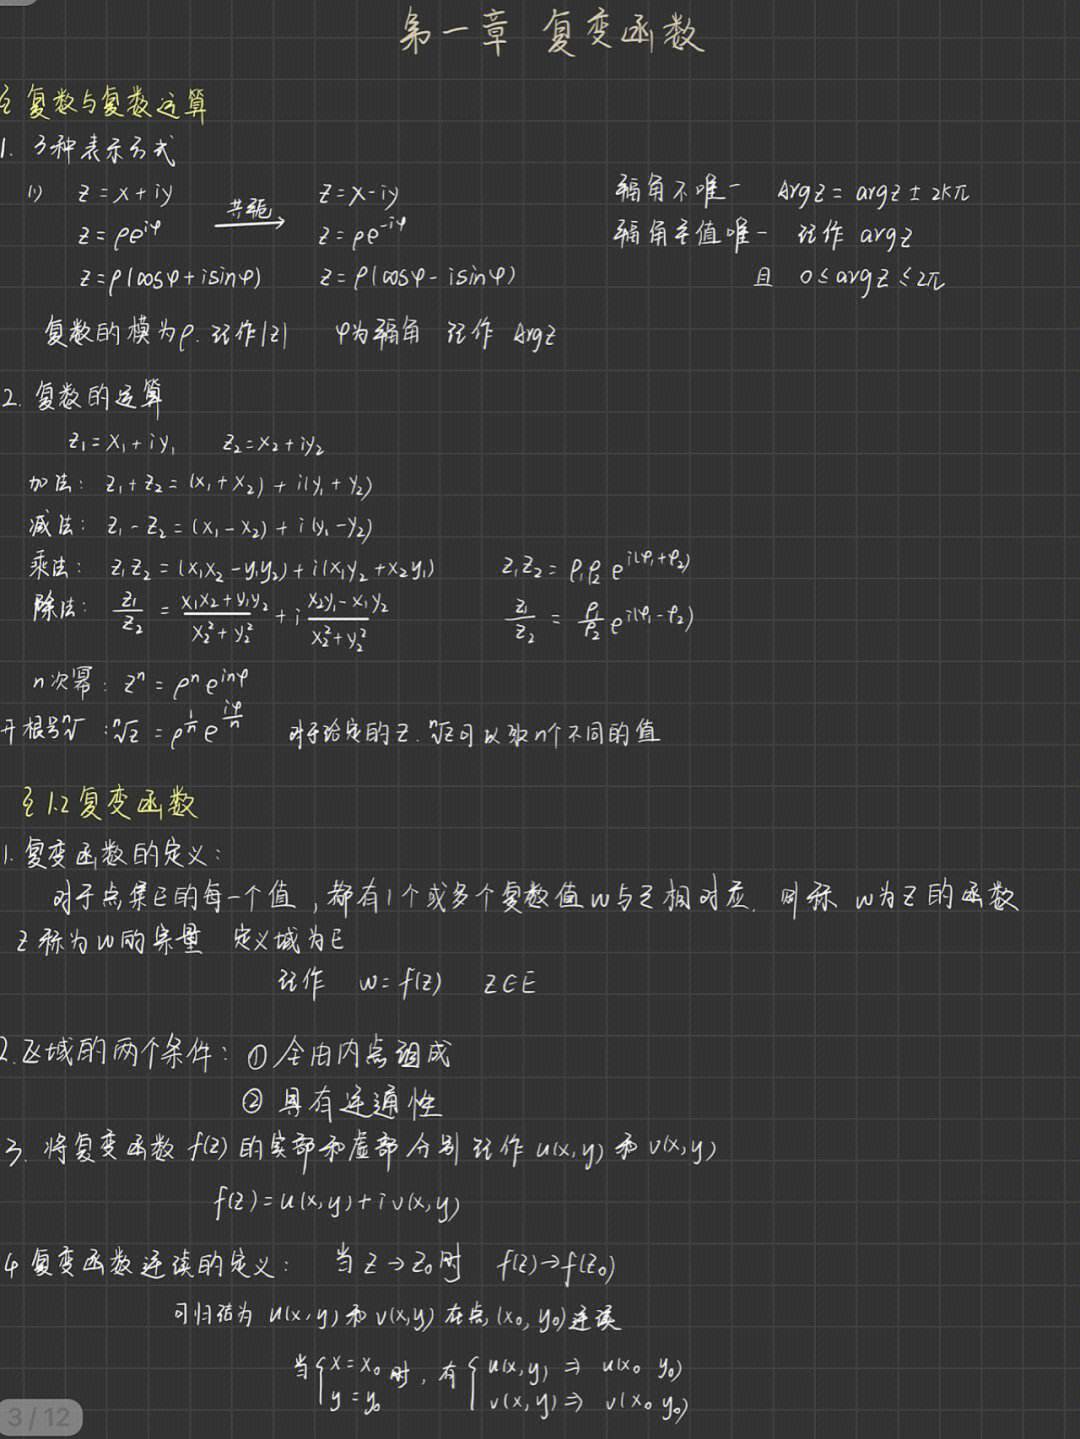 第一章 复变函数
复数与复数运算
1. 3种表示方式
(1) z = x + iy 共轭 z = x - iy 辐角不唯一 Argz = argz ± 2kπ
z = ρe^{iφ} z = ρe^{-iφ} 辐角主值唯一 记作 argz
z = ρ(cosφ + isinφ) z = ρ(cosφ - isinφ) 且 0 ≤ argz ≤ 2π
复数的模为ρ. 记作|z| φ为辐角 记作 Argz
2. 复数的运算
z₁ = x₁ + iy₁ z₂ = x₂ + iy₂
加法: z₁ + z₂ = (x₁ + x₂) + i(y₁ + y₂)
减法: z₁ - z₂ = (x₁ - x₂) + i(y₁ - y₂)
乘法: z₁z₂ = (x₁x₂ - y₁y₂) + i(x₁y₂ + x₂y₁) z₁z₂ = ρ₁ρ₂ e^{i(φ₁+φ₂)}
除法: z₁/z₂ = (x₁x₂ + y₁y₂)/(x₂² + y₂²) + i (x₂y₁ - x₁y₂)/(x₂² + y₂²) z₁/z₂ = ρ₁/ρ₂ e^{i(φ₁-φ₂)}
n次幂: zⁿ = ρⁿe^{inφ}
开根号ⁿ√ : ⁿ√z = ρ^{1/n} e^{iφ/n} 对于给定的z. ⁿ√z可以取n个不同的值
§1.2 复变函数
1. 复变函数的定义:
对于点集E的每一个值, 都有1个或多个复数值w与之相对应. 则称 w为z的函数
z称为w的宗量 定义域为E
记作 w = f(z) z∈E
2. 区域的两个条件: ① 全由内点组成
② 具有连通性
3. 将复变函数 f(z) 的实部和虚部分别记作 u(x,y) 和 v(x,y)
f(z) = u(x,y) + iv(x,y)
4 复变函数连续的定义: 当 z → z₀ 时 f(z) → f(z₀)
可归结为 u(x,y) 和 v(x,y) 在点 (x₀, y₀) 连续
当{x = x₀ 时, 有 {u(x,y) ⇒ u(x₀ y₀)
y = y₀ v(x,y) ⇒ v(x₀ y₀)
3 / 12